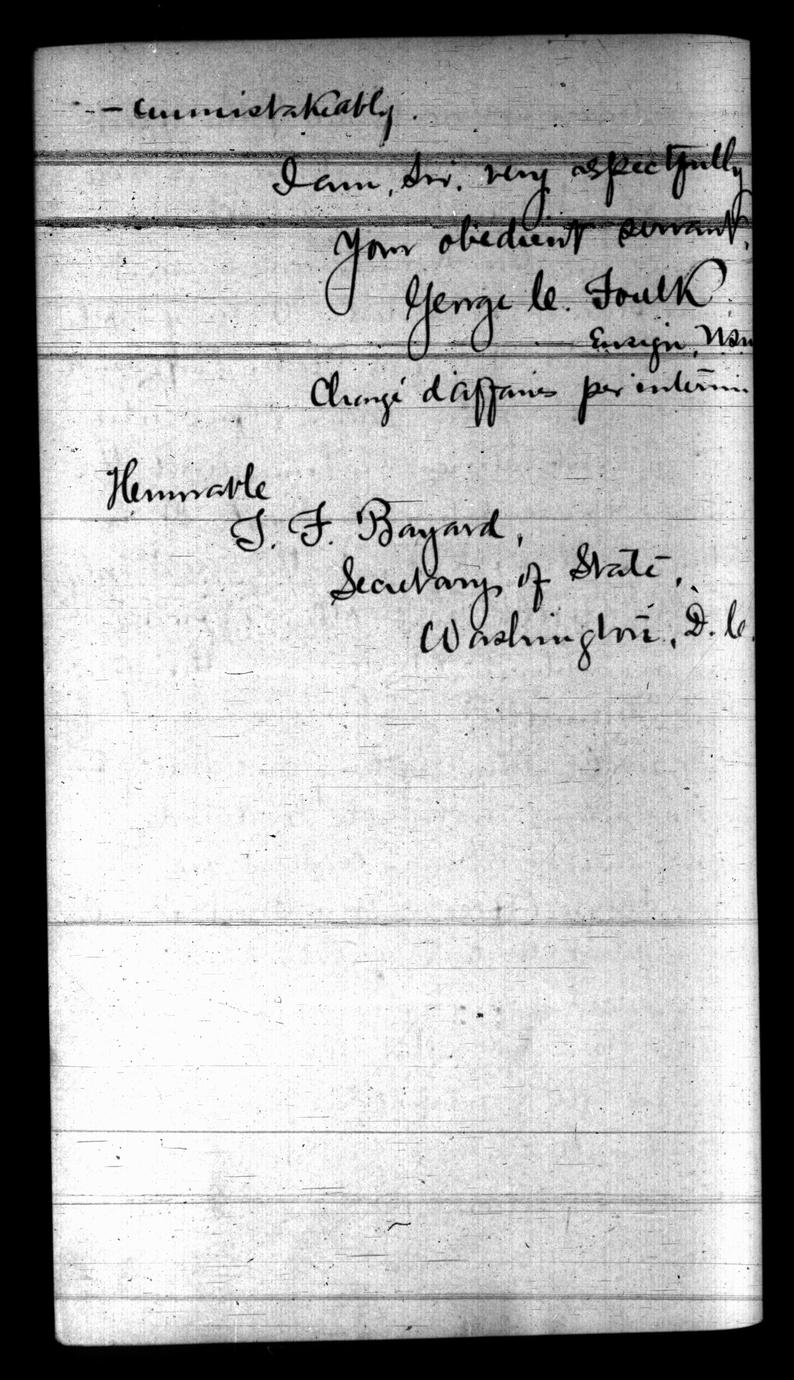 - unmistakeably.
I am, Sir, very respectfully
Your obedient servant,
George C. Foulk.
Ensign, USN
Chargé d'affaires per interim.
Honorable
T. F. Bayard,
Secretary of State,
Washington, D. C.